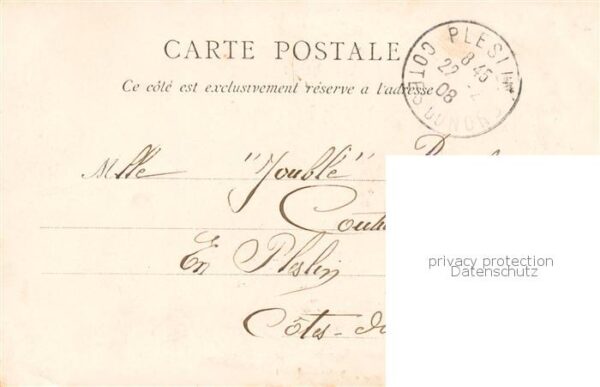 CARTE POSTALE
Ce côté est exclusivement réservé a l'adresse
PLESLIN
8 45
22
08
COTES DU NORD
Mlle
En Pleslin
Côtes-du
privacy protection
Datenschutz